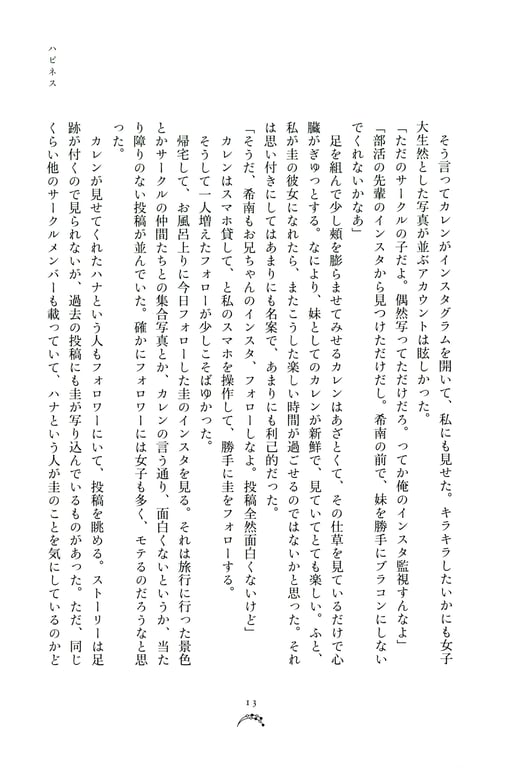 ハピネス
そう言ってカレンがインスタグラムを開いて、私にも見せた。キラキラしたいかにも女子
大生然とした写真が並ぶアカウントは眩しかった。
「ただのサークルの子だよ。偶然写ってただけだろ。ってか俺のインスタ監視すんなよ」
「部活の先輩のインスタから見つけただけだし。希南の前で、妹を勝手にブラコンにしない
でくれないかなあ」
足を組んで少し頬を膨らませてみせるカレンはあざとくて、その仕草を見ているだけで心
臓がぎゅっとする。なにより、妹としてのカレンが新鮮で、見ていてとても楽しい。ふと、
私が圭の彼女になれたら、またこうした楽しい時間が過ごせるのではないかと思った。それ
は思い付きにしてはあまりにも名案で、あまりにも利己的だった。
「そうだ、希南もお兄ちゃんのインスタ、フォローしなよ。投稿全然面白くないけど」
カレンはスマホ貸して、と私のスマホを操作して、勝手に圭をフォローする。
そうして一人増えたフォローが少しこそばゆかった。
帰宅して、お風呂上りに今日フォローした圭のインスタを見る。それは旅行に行った景色
とかサークルの仲間たちとの集合写真とか、カレンの言う通り、面白くないというか、当た
り障りのない投稿が並んでいた。確かにフォロワーには女子も多く、モテるのだろうなと思
った。
カレンが見せてくれたハナという人もフォロワーにいて、投稿を眺める。ストーリーは足
跡が付くので見られないが、過去の投稿にも圭が写り込んでいるものがあった。ただ、同じ
くらい他のサークルメンバーも載っていて、ハナという人が圭のことを気にしているのかど
13